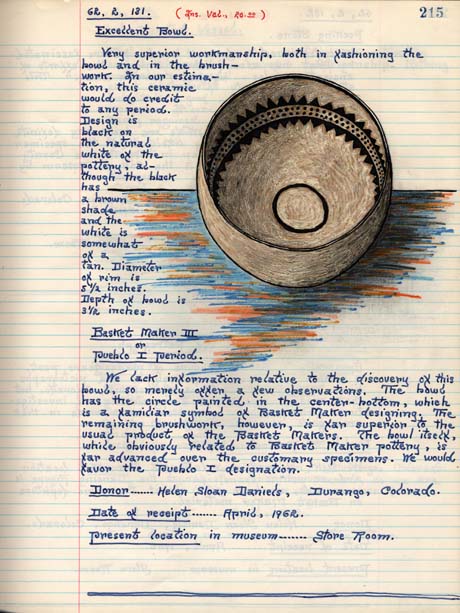 62, 2, 131. (Ins. Val., 20.00) 215
Excellent Bowl.
Very superior workmanship, both in fashioning the
bowl and in the brush-
work. In our estima-
tion, this ceramic
would do credit
to any period.
Design is
black on
the natural
white of the
pottery, al-
though the black
has
a brown
shade
and the
white is
somewhat
of a
tan. Diameter
of rim is
5 1/2 inches.
Depth of bowl is
3 1/2 inches.
Basket Maker III
or
Pueblo I Period.
We lack information relative to the discovery of this
bowl, so merely offer a few observations. The bowl
has the circle painted in the center-bottom, which
is a familiar symbol of Basket Maker designing. The
remaining brushwork, however, is far superior to the
usual product of the Basket Makers. The bowl itself,
while obviously related to Basket Maker pottery, is
far advanced over the customary specimens. We would
favor the Pueblo I designation.
Donor....... Helen Sloan Daniels, Durango, Colorado.
Date of receipt....... April, 1962.
Present location in museum....... Store Room.